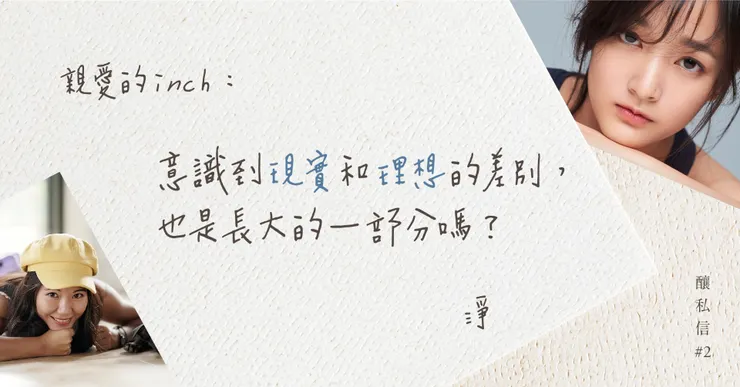 親愛的inch：
意識到現實和理想的差別，
也是長大的一部分嗎？
淨
釀私信
#2